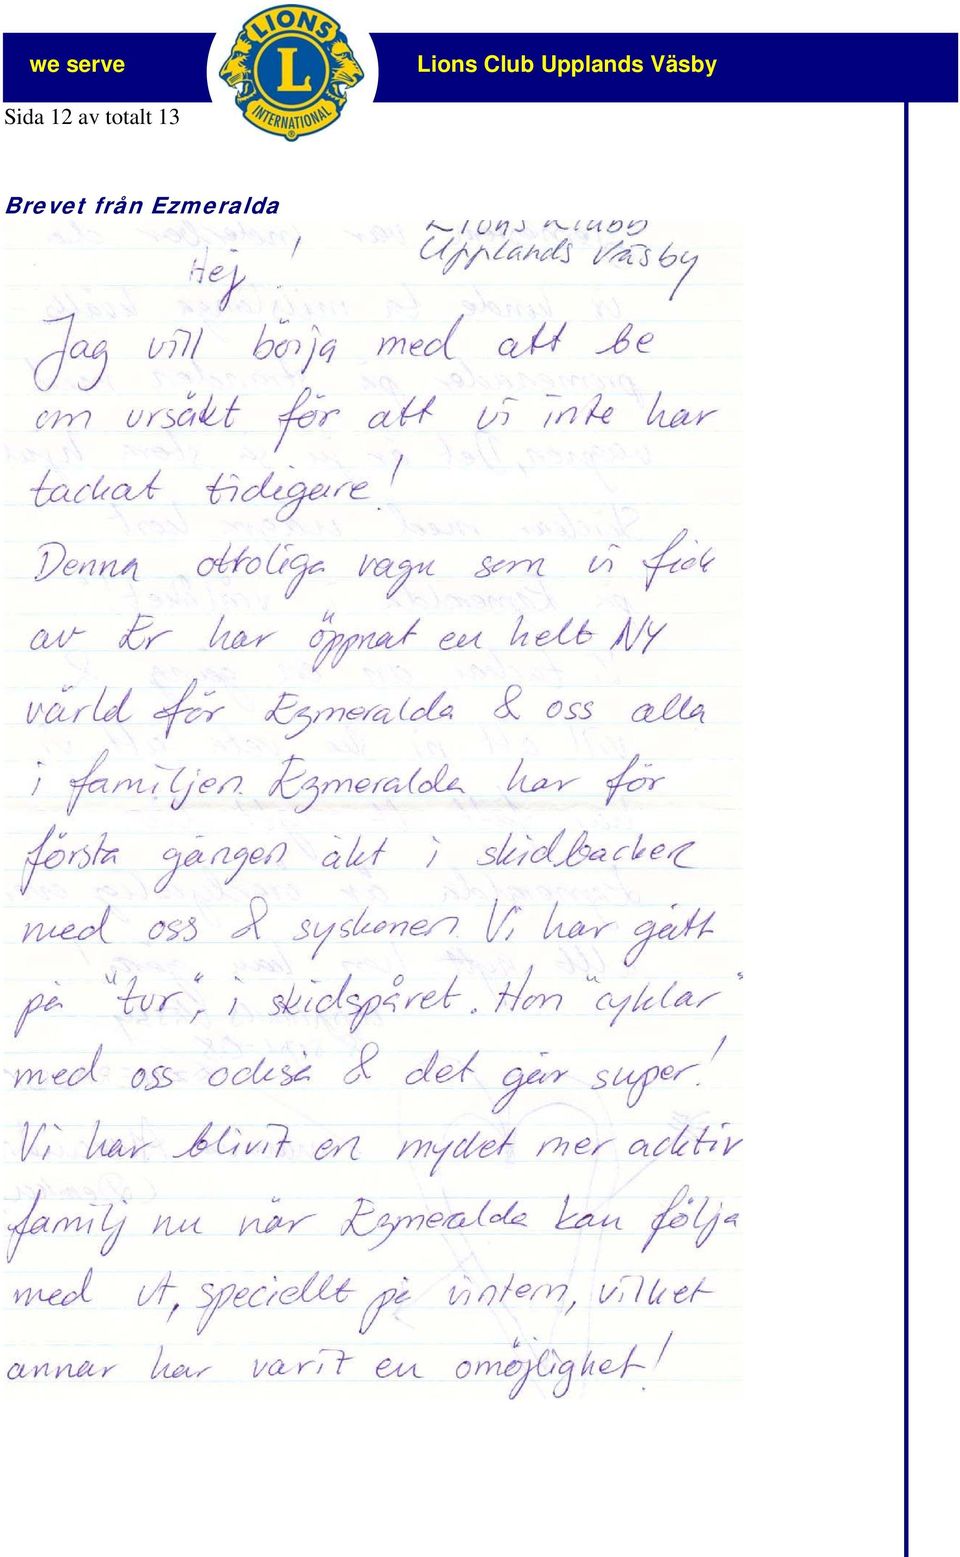 we serve
LIONS
L
INTERNATIONAL
Lions Club Upplands Väsby
Sida 12 av totalt 13
Brevet från Ezmeralda
Lions Klubb
Upplands Väsby
Hej!
Jag vill börja med att be
om ursäkt för att vi inte har
tackat tidigare!
Denna otroliga vagn som vi fick
av Er har öppnat en helt NY
värld för Ezmeralda & oss alla
i familjen. Ezmeralda har för
första gången åkt i skidbacken
med oss & syskonen. Vi har gått
på "tur", i skidspåret. Hon "cyklar"
med oss också & det går super!
Vi har blivit en mycket mer acktiv
familj nu när Ezmeralda kan följa
med ut, speciellt på vintern, vilket
annar har varit en omöjlighet!